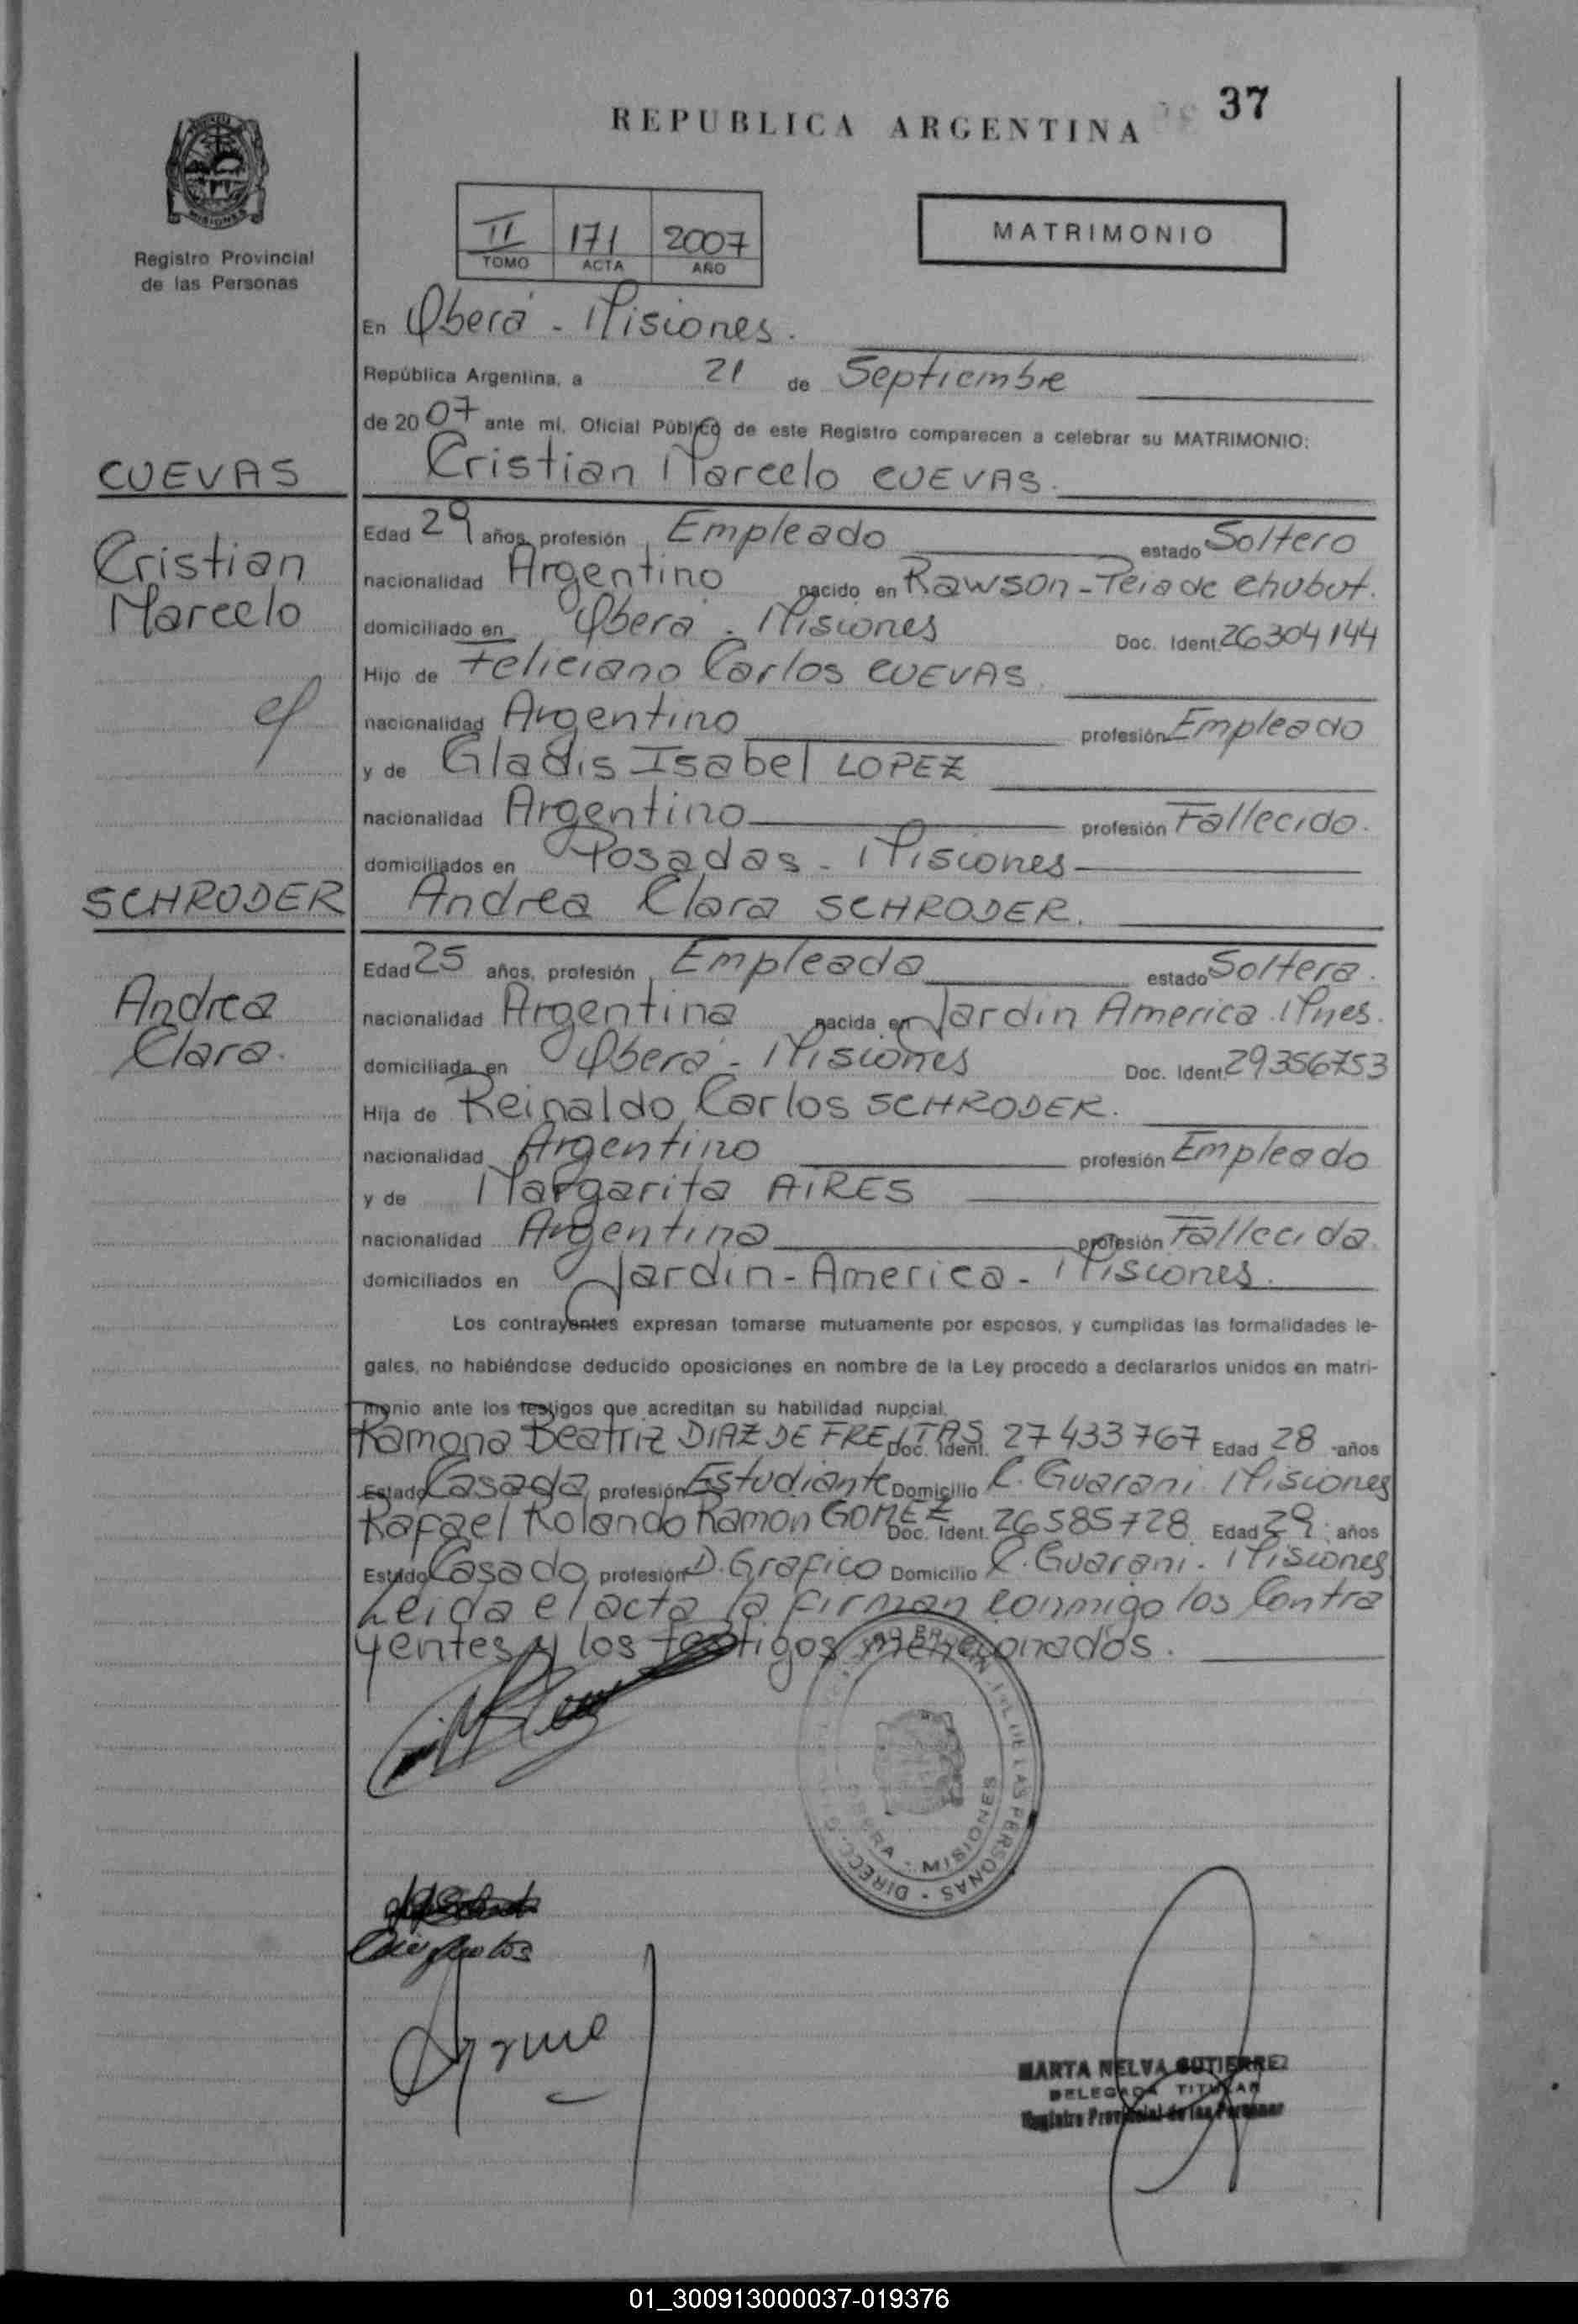 37
REPUBLICA ARGENTINA
MISIONES
Registro Provincial
de las Personas
II 171 2007
TOMO ACTA AÑO
MATRIMONIO
En Oberá - Misiones.
República Argentina, a 21 de Septiembre
de 2007 ante mí, Oficial Público de este Registro comparecen a celebrar su MATRIMONIO:
CUEVAS
Cristian Marcelo CUEVAS.
Cristian
Marcelo
Edad 29 años, profesión Empleado estado Soltero
nacionalidad Argentino nacido en Rawson - Pcia de Chubut.
domiciliado en Oberá - Misiones Doc. Ident. 26304144
Hijo de Feliciano Carlos CUEVAS
nacionalidad Argentino profesión Empleado
y de Gladis Isabel LOPEZ
nacionalidad Argentino profesión Fallecido.
domiciliados en Posadas - Misiones
SCHRODER
Andrea Clara SCHRODER.
Andrea
Clara.
Edad 25 años, profesión Empleada estado Soltera.
nacionalidad Argentina nacida en Jardin America Mnes.
domiciliada en Oberá - Misiones Doc. Ident. 29356753
Hija de Reinaldo Carlos SCHRODER.
nacionalidad Argentino profesión Empleado
y de Margarita AIRES
nacionalidad Argentina profesión Fallecida
domiciliados en Jardin - America - Misiones.
Los contrayentes expresan tomarse mutuamente por esposos, y cumplidas las formalidades le-
gales, no habiéndose deducido oposiciones en nombre de la Ley procedo a declararlos unidos en matri-
monio ante los testigos que acreditan su habilidad nupcial.
Ramona Beatriz DIAZ DE FREITAS Doc. Ident. 27433767 Edad 28 años
Estado Casada profesión Estudiante Domicilio C. Guarani Misiones
Rafael Rolando Ramon GOMEZ Doc. Ident. 26585728 Edad 29 años
Estado Casado profesión D. Grafico Domicilio C. Guarani. Misiones
Leida el acta la firman conmigo los Contra
yentes y los testigos mencionados.
DIRECC REGISTRO PROVINCIAL DE LAS PERSONAS
OBERA - MISIONES
MARTA NELVA GUTIERREZ
DELEGADA TITULAR
Registro Provincial de las Personas
01_300913000037-019376